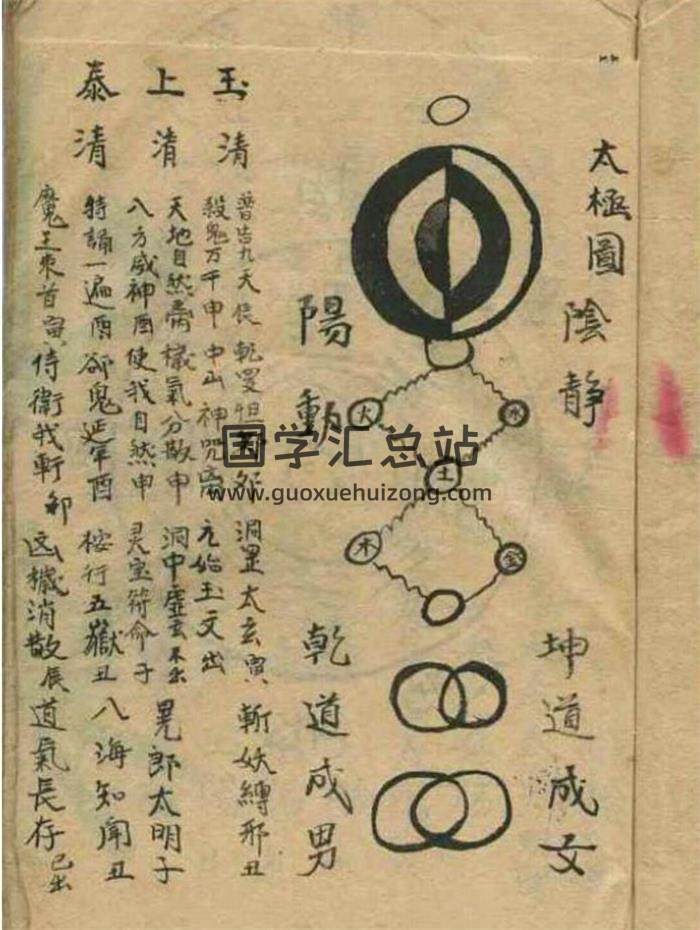 太極圖
陰靜
陽動
火 水
土
木 金
坤道成女
乾道成男
玉清
上清
泰清
普告九天 乾罡怛 洞罡太玄寅 斬妖縛邪丑
殺鬼万千申 中山神咒 元始玉文出
天地自然 穢氣分散申 洞中虛玄 出 晃郎太明子
八方威神酉 使我自然申 灵宝符命子
特誦一遍酉 郤鬼延年酉 桉行五嶽丑 八海知聞丑
魔王束首寅 侍衛我軒卯 凶穢消散辰 道氣長存已出
国学汇总站
www.guoxuehuizong.com